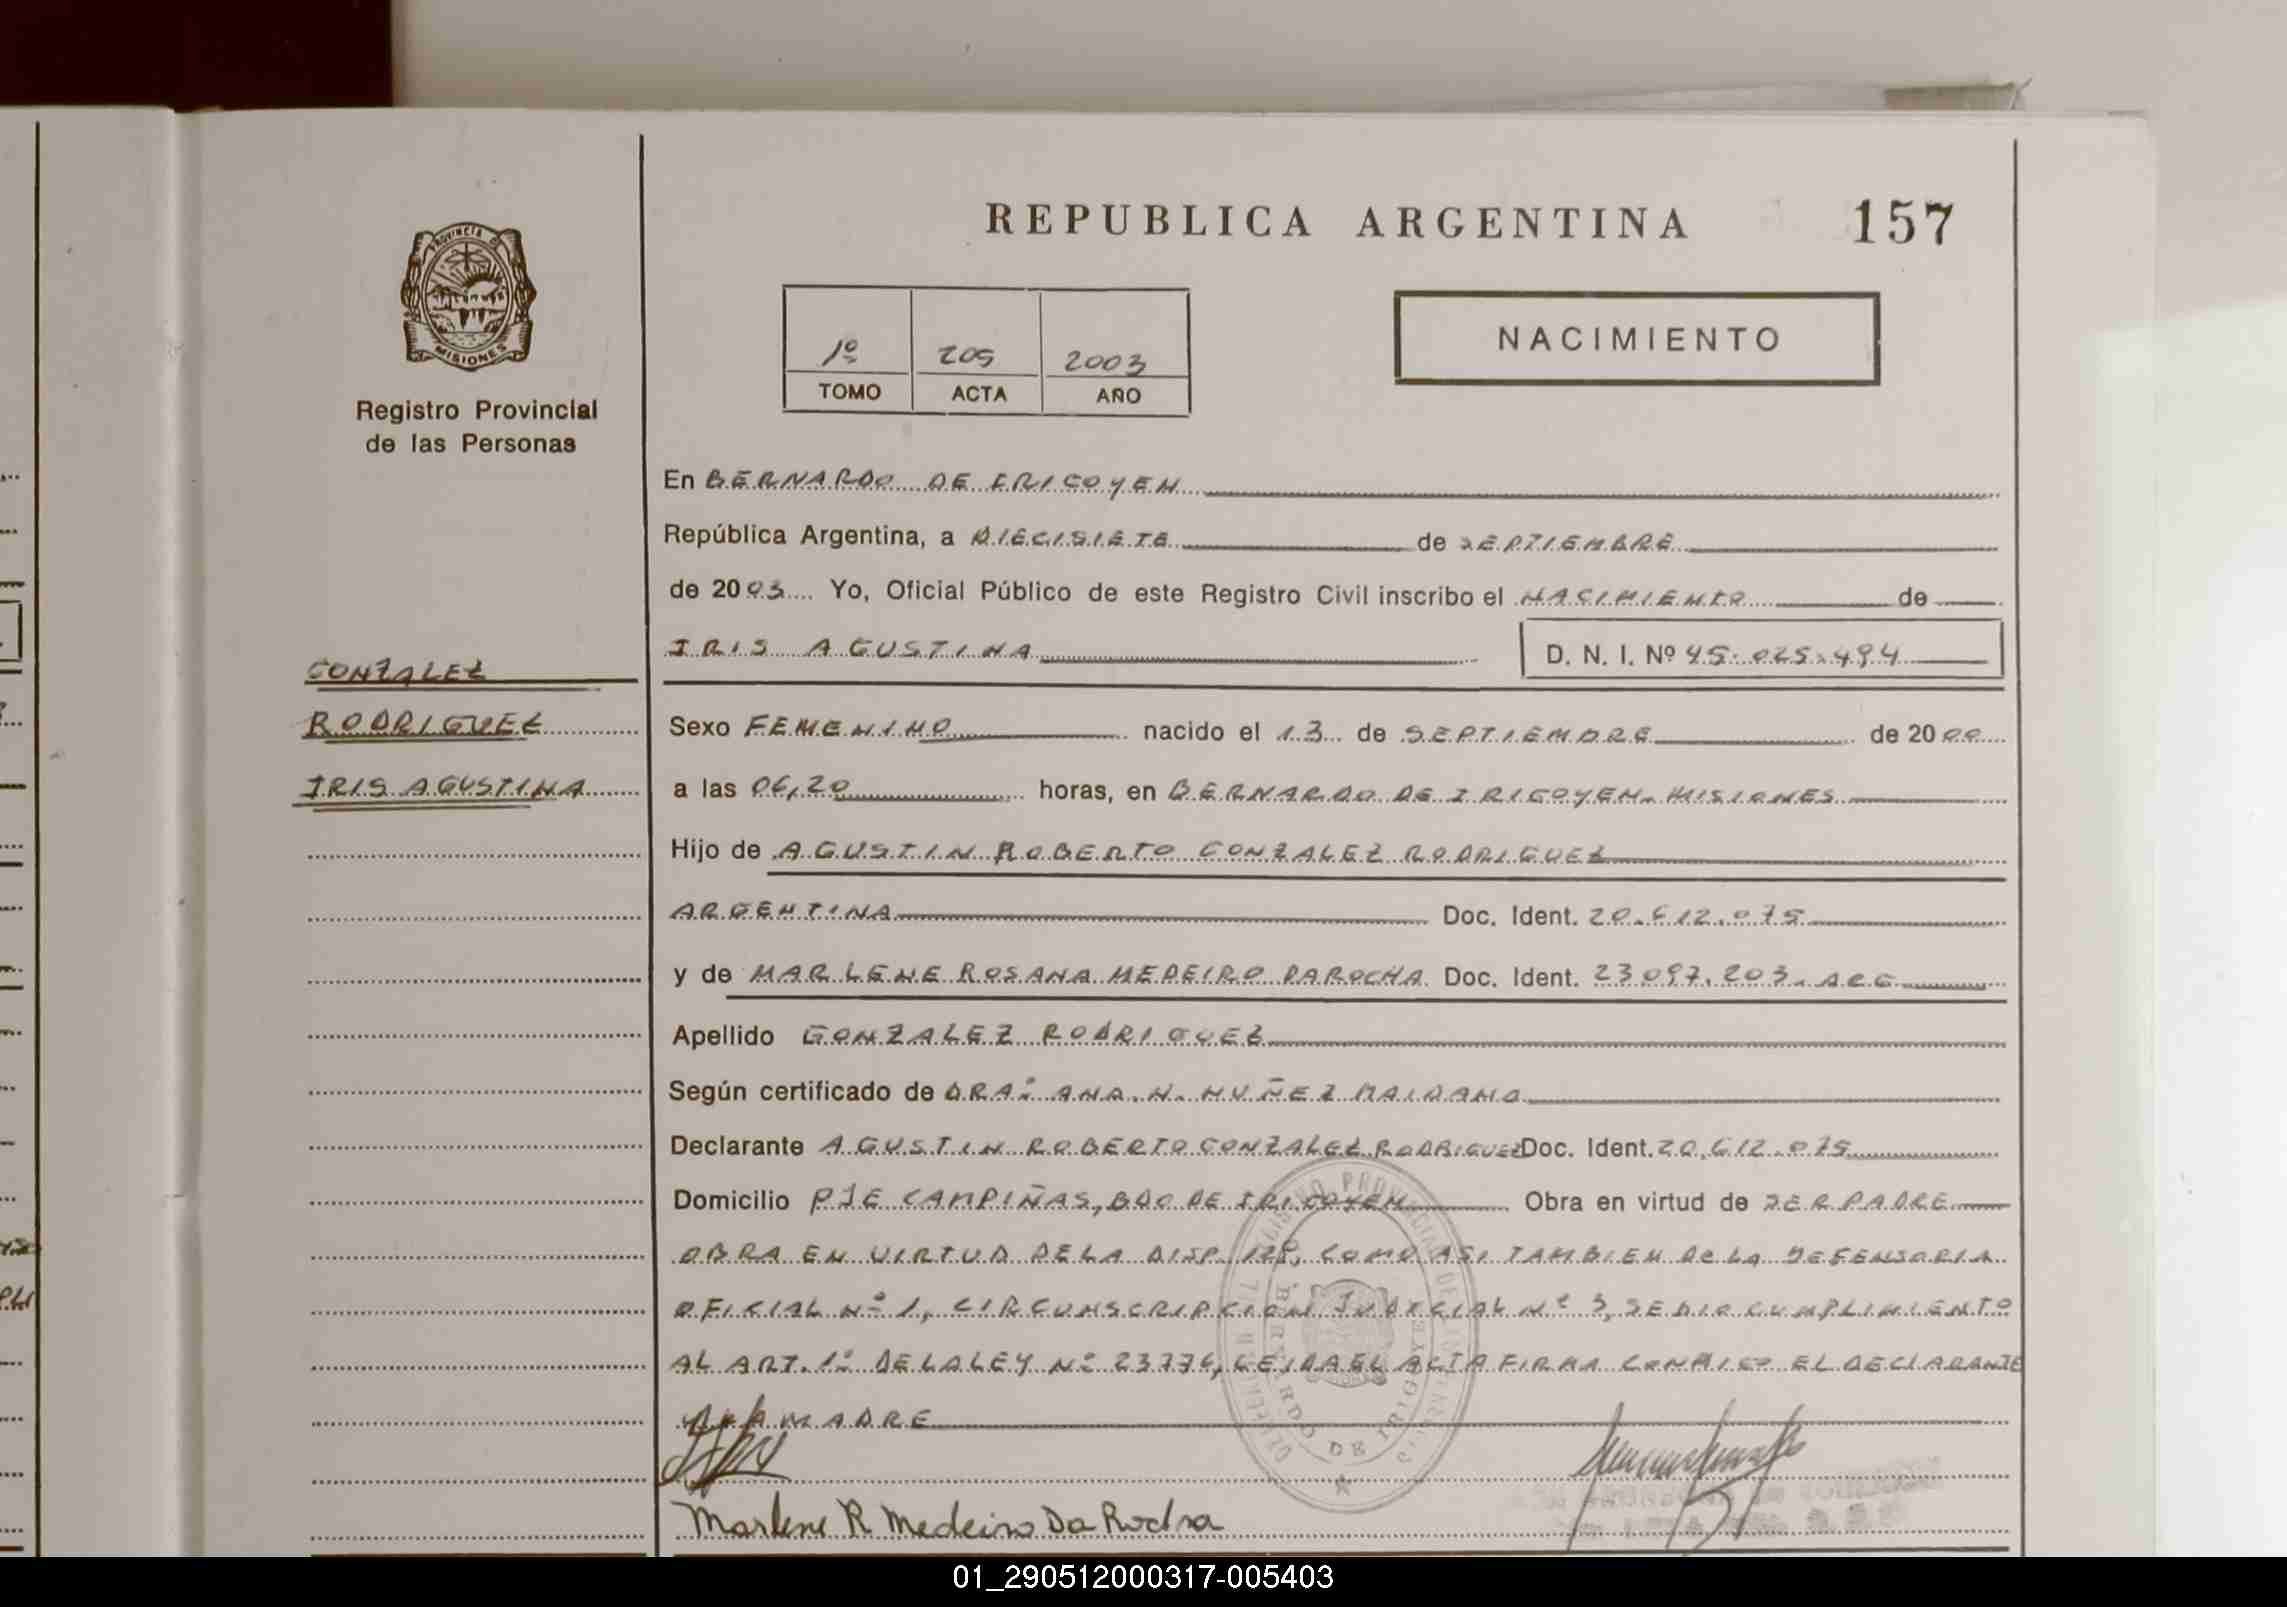 REPUBLICA ARGENTINA 157
PROVINCIA DE
MISIONES
Registro Provincial
de las Personas
1º 205 2003
TOMO ACTA AÑO
NACIMIENTO
En BERNARDO DE IRIGOYEN
República Argentina, a DIECISIETE de SEPTIEMBRE
de 2003 Yo, Oficial Público de este Registro Civil inscribo el NACIMIENTO de
IRIS AGUSTINA D. N. I. Nº 45.025.494
GONZALEZ
RODRIGUEZ
IRIS AGUSTINA
Sexo FEMENINO nacido el 13 de SEPTIEMBRE de 2000
a las 06,20 horas, en BERNARDO DE IRIGOYEN. MISIONES
Hijo de AGUSTIN ROBERTO GONZALEZ RODRIGUEZ
ARGENTINA Doc. Ident. 20.612.075
y de MARLENE ROSANA MEDEIRO DAROCHA Doc. Ident. 23097.203. ARG
Apellido GONZALEZ RODRIGUEZ
Según certificado de DRAº ANA. N. NUÑEZ MAIDANA
Declarante AGUSTIN ROBERTO GONZALEZ RODRIGUEZ Doc. Ident. 20.612.075
Domicilio PJE CAMPIÑAS, BDO DE IRIGOYEN Obra en virtud de SER PADRE
OBRA EN VIRTUD DE LA DISP. COMO ASI TAMBIEN DE LA DEFENSORIA
OFICIAL Nº 1, CIRCUNSCRIPCION JUDICIAL Nº 3, SE DIO CUMPLIMIENTO
AL ART. 1º DE LA LEY Nº 23776, LEIDA EL ACTA FIRMA CONMIGO EL DECLARANTE
Y LA MADRE
Marlene R Medeiro Da Rocha
01_290512000317-005403